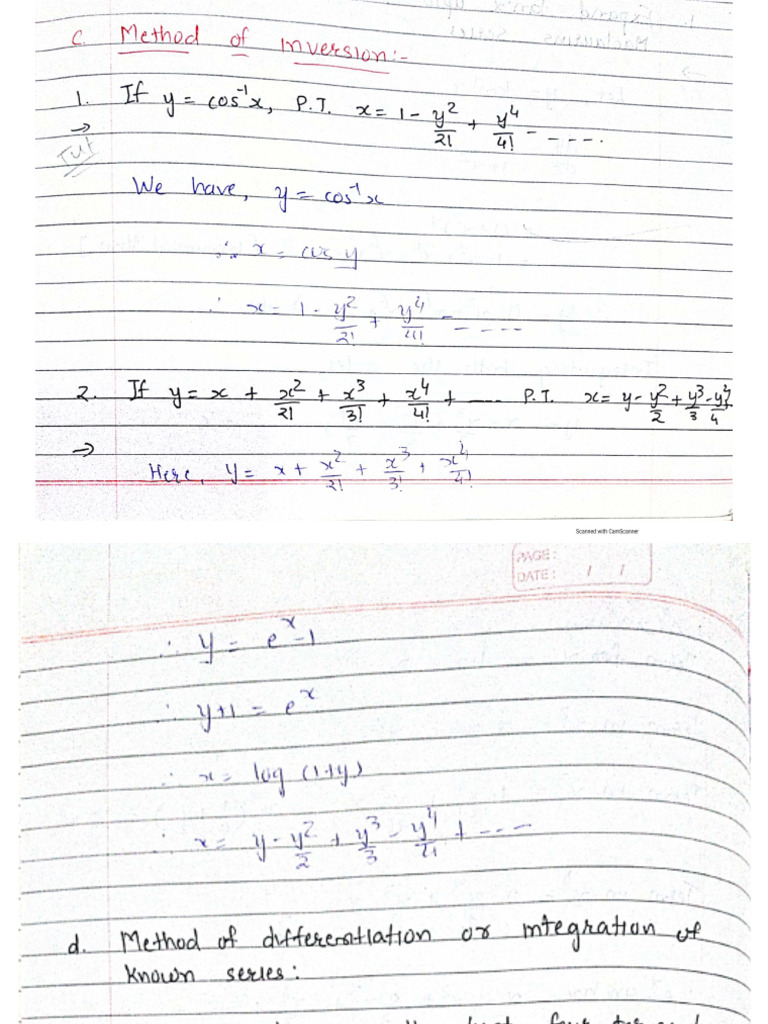 C. Method of Inversion:-
1. If y = cos⁻¹x, P.T. x = 1 - y²/2! + y⁴/4! - .....
→
Tut
We have, y = cos⁻¹x
∴ x = cos y
∴ x = 1 - y²/2! + y⁴/4! - ----
2. If y = x + x²/2! + x³/3! + x⁴/4! + ---- P.T. x = y - y²/2 + y³/3 - y⁴/4
→
Here, y = x + x²/2! + x³/3! + x⁴/4!
Scanned with CamScanner
PAGE:
DATE: / /
∴ y = eˣ - 1
∴ y+1 = eˣ
∴ x = log (1+y)
∴ x = y - y²/2 + y³/3 - y⁴/4 + ----
d. Method of differentiation or integration of
known series: